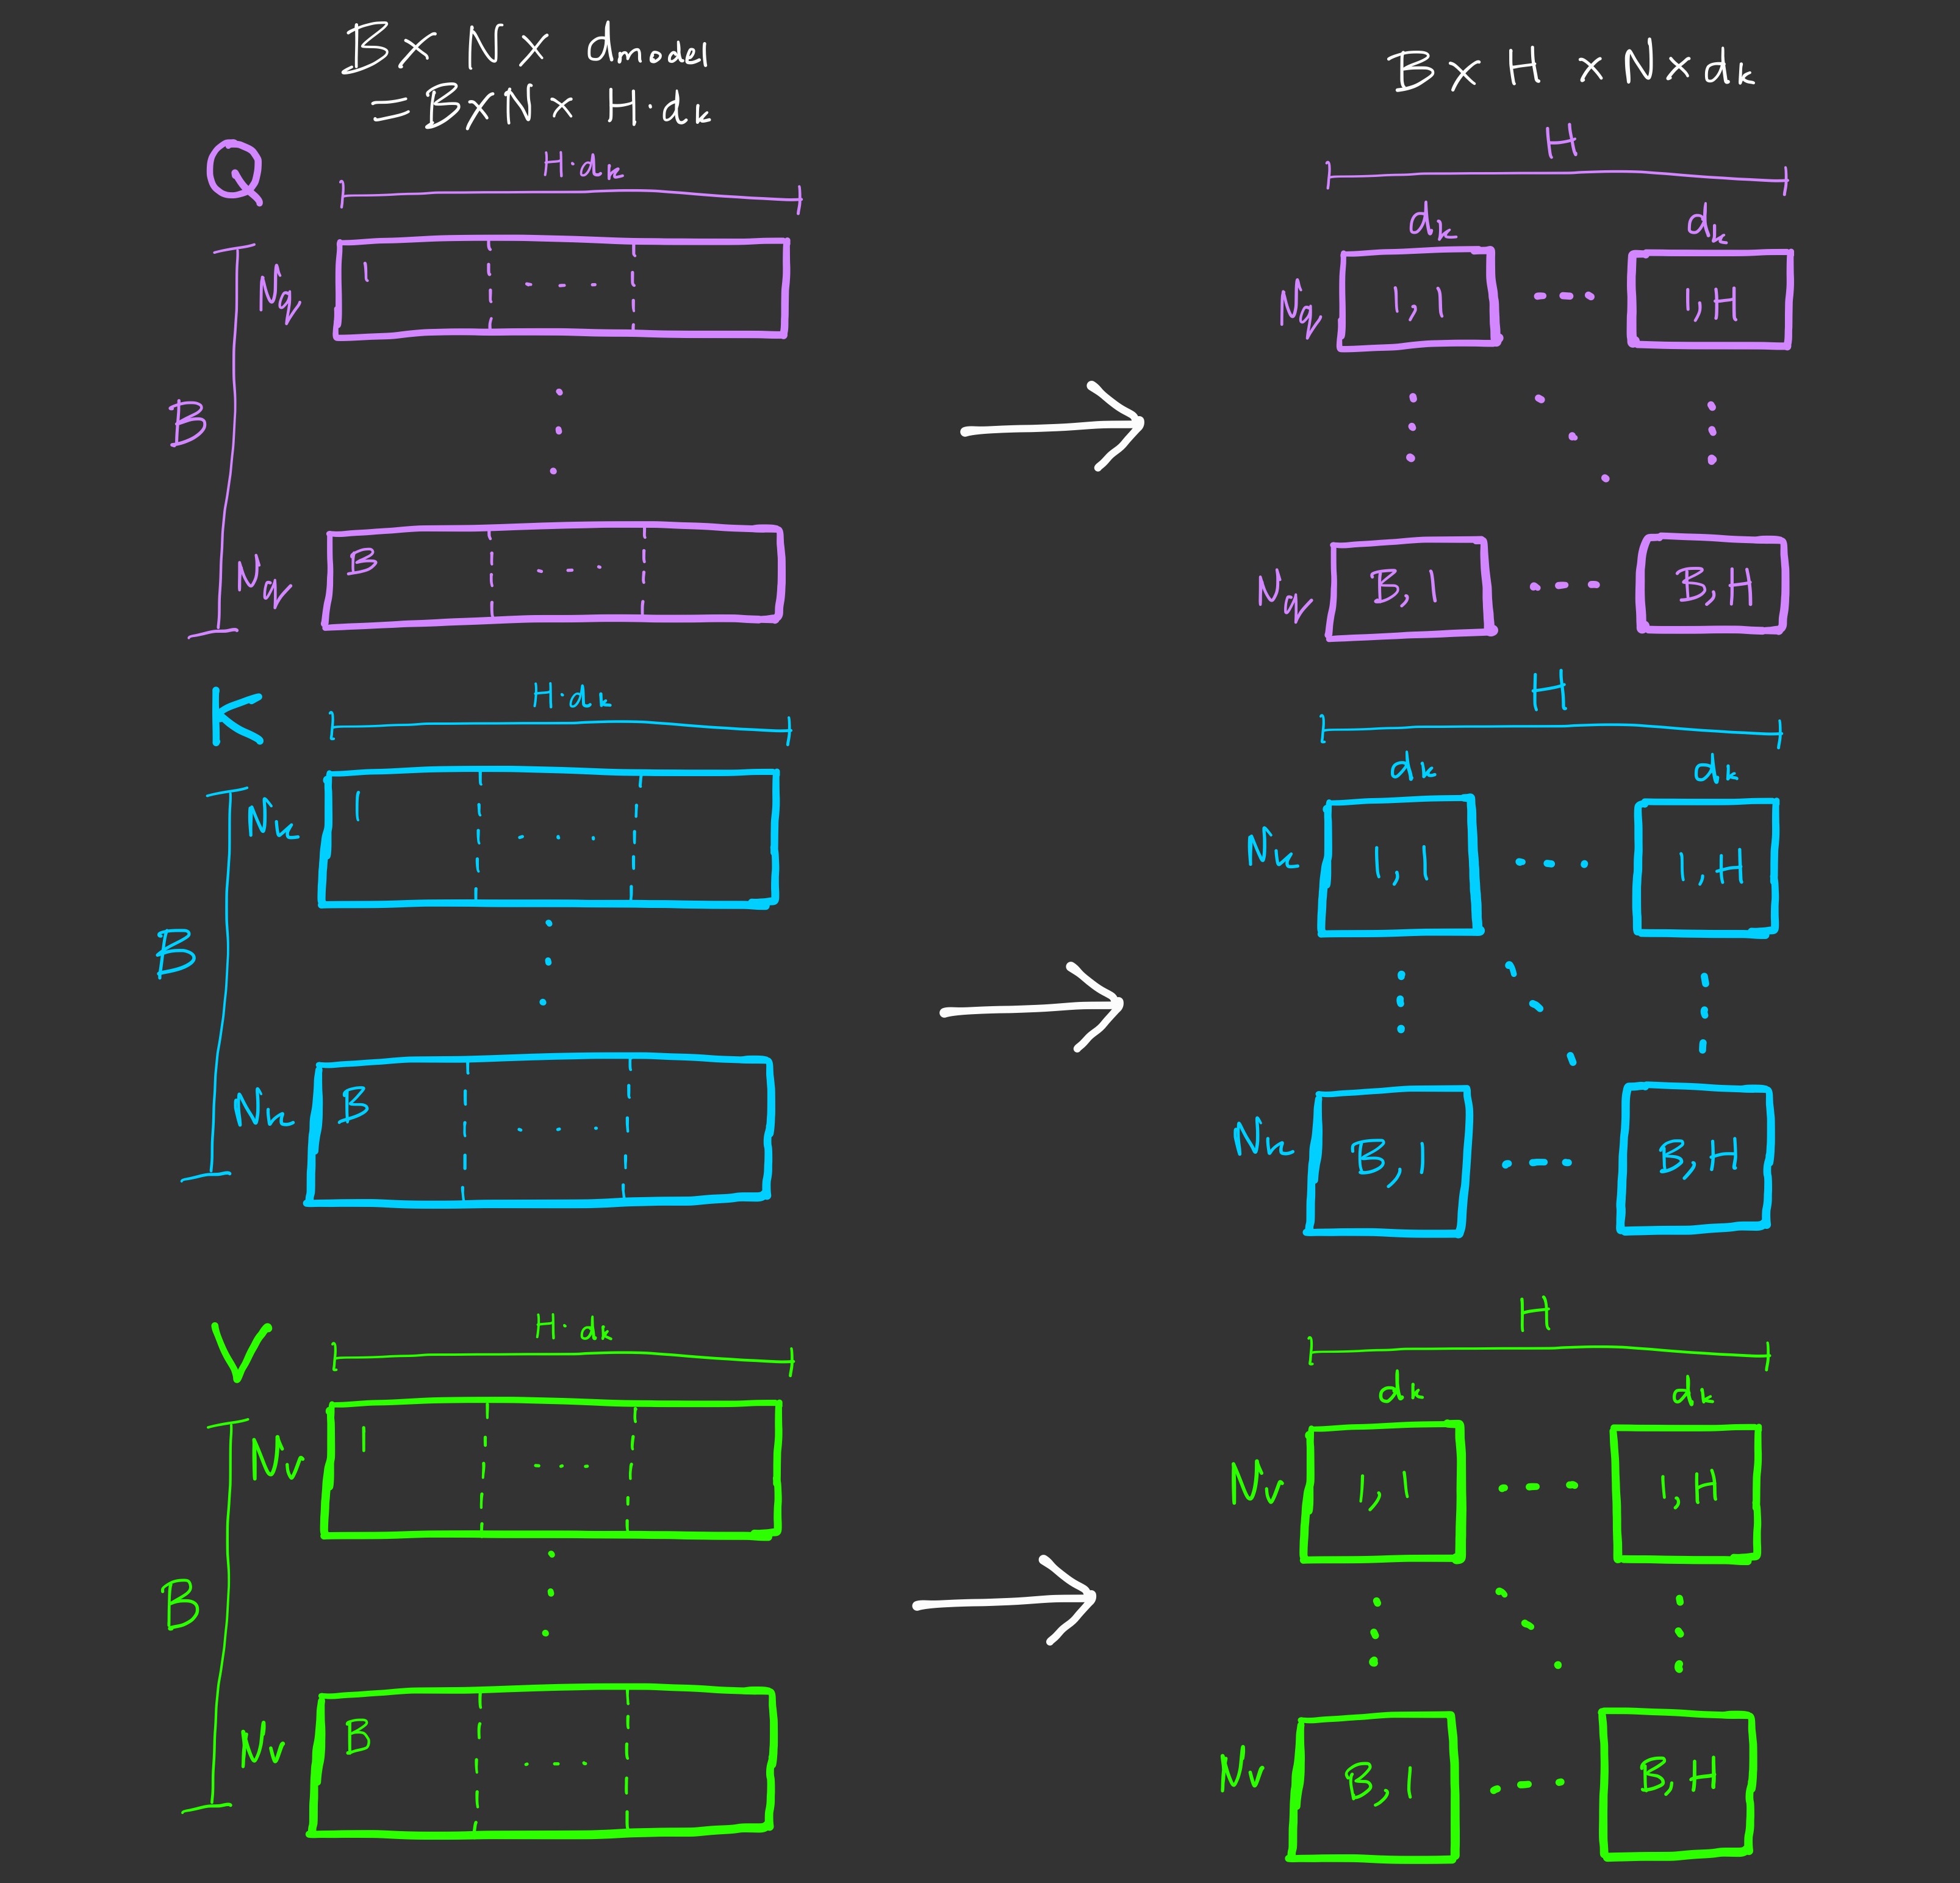 B × N × d_model
= B × N × H·d_k
B × H × N × d_k
Q
H·d_k
N_q
1
B
N_q
B
H
d_k
d_k
N_q
1,1
1,H
N_q
B,1
B,H
K
H·d_k
N_k
1
B
N_k
B
H
d_k
d_k
N_k
1,1
1,H
N_k
B,1
B,H
V
H·d_k
N_v
1
B
N_v
B
H
d_k
d_k
N_v
1,1
1,H
N_v
B,1
B,H